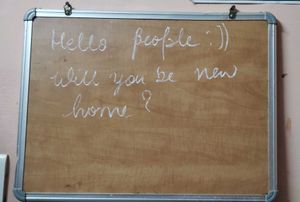 Hello people :))
will you be new
home?